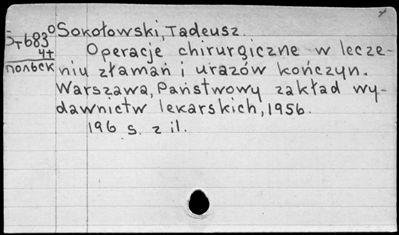 Sokołowski, Tadeusz.
5т683⁰
4+
польск
Operacje chirurgiczne w lecze-
niu złamań i urazów kończyn.
Warszawa, Państwowy zakład wy-
dawnictw lekarskich, 1956.
196 s. z il.